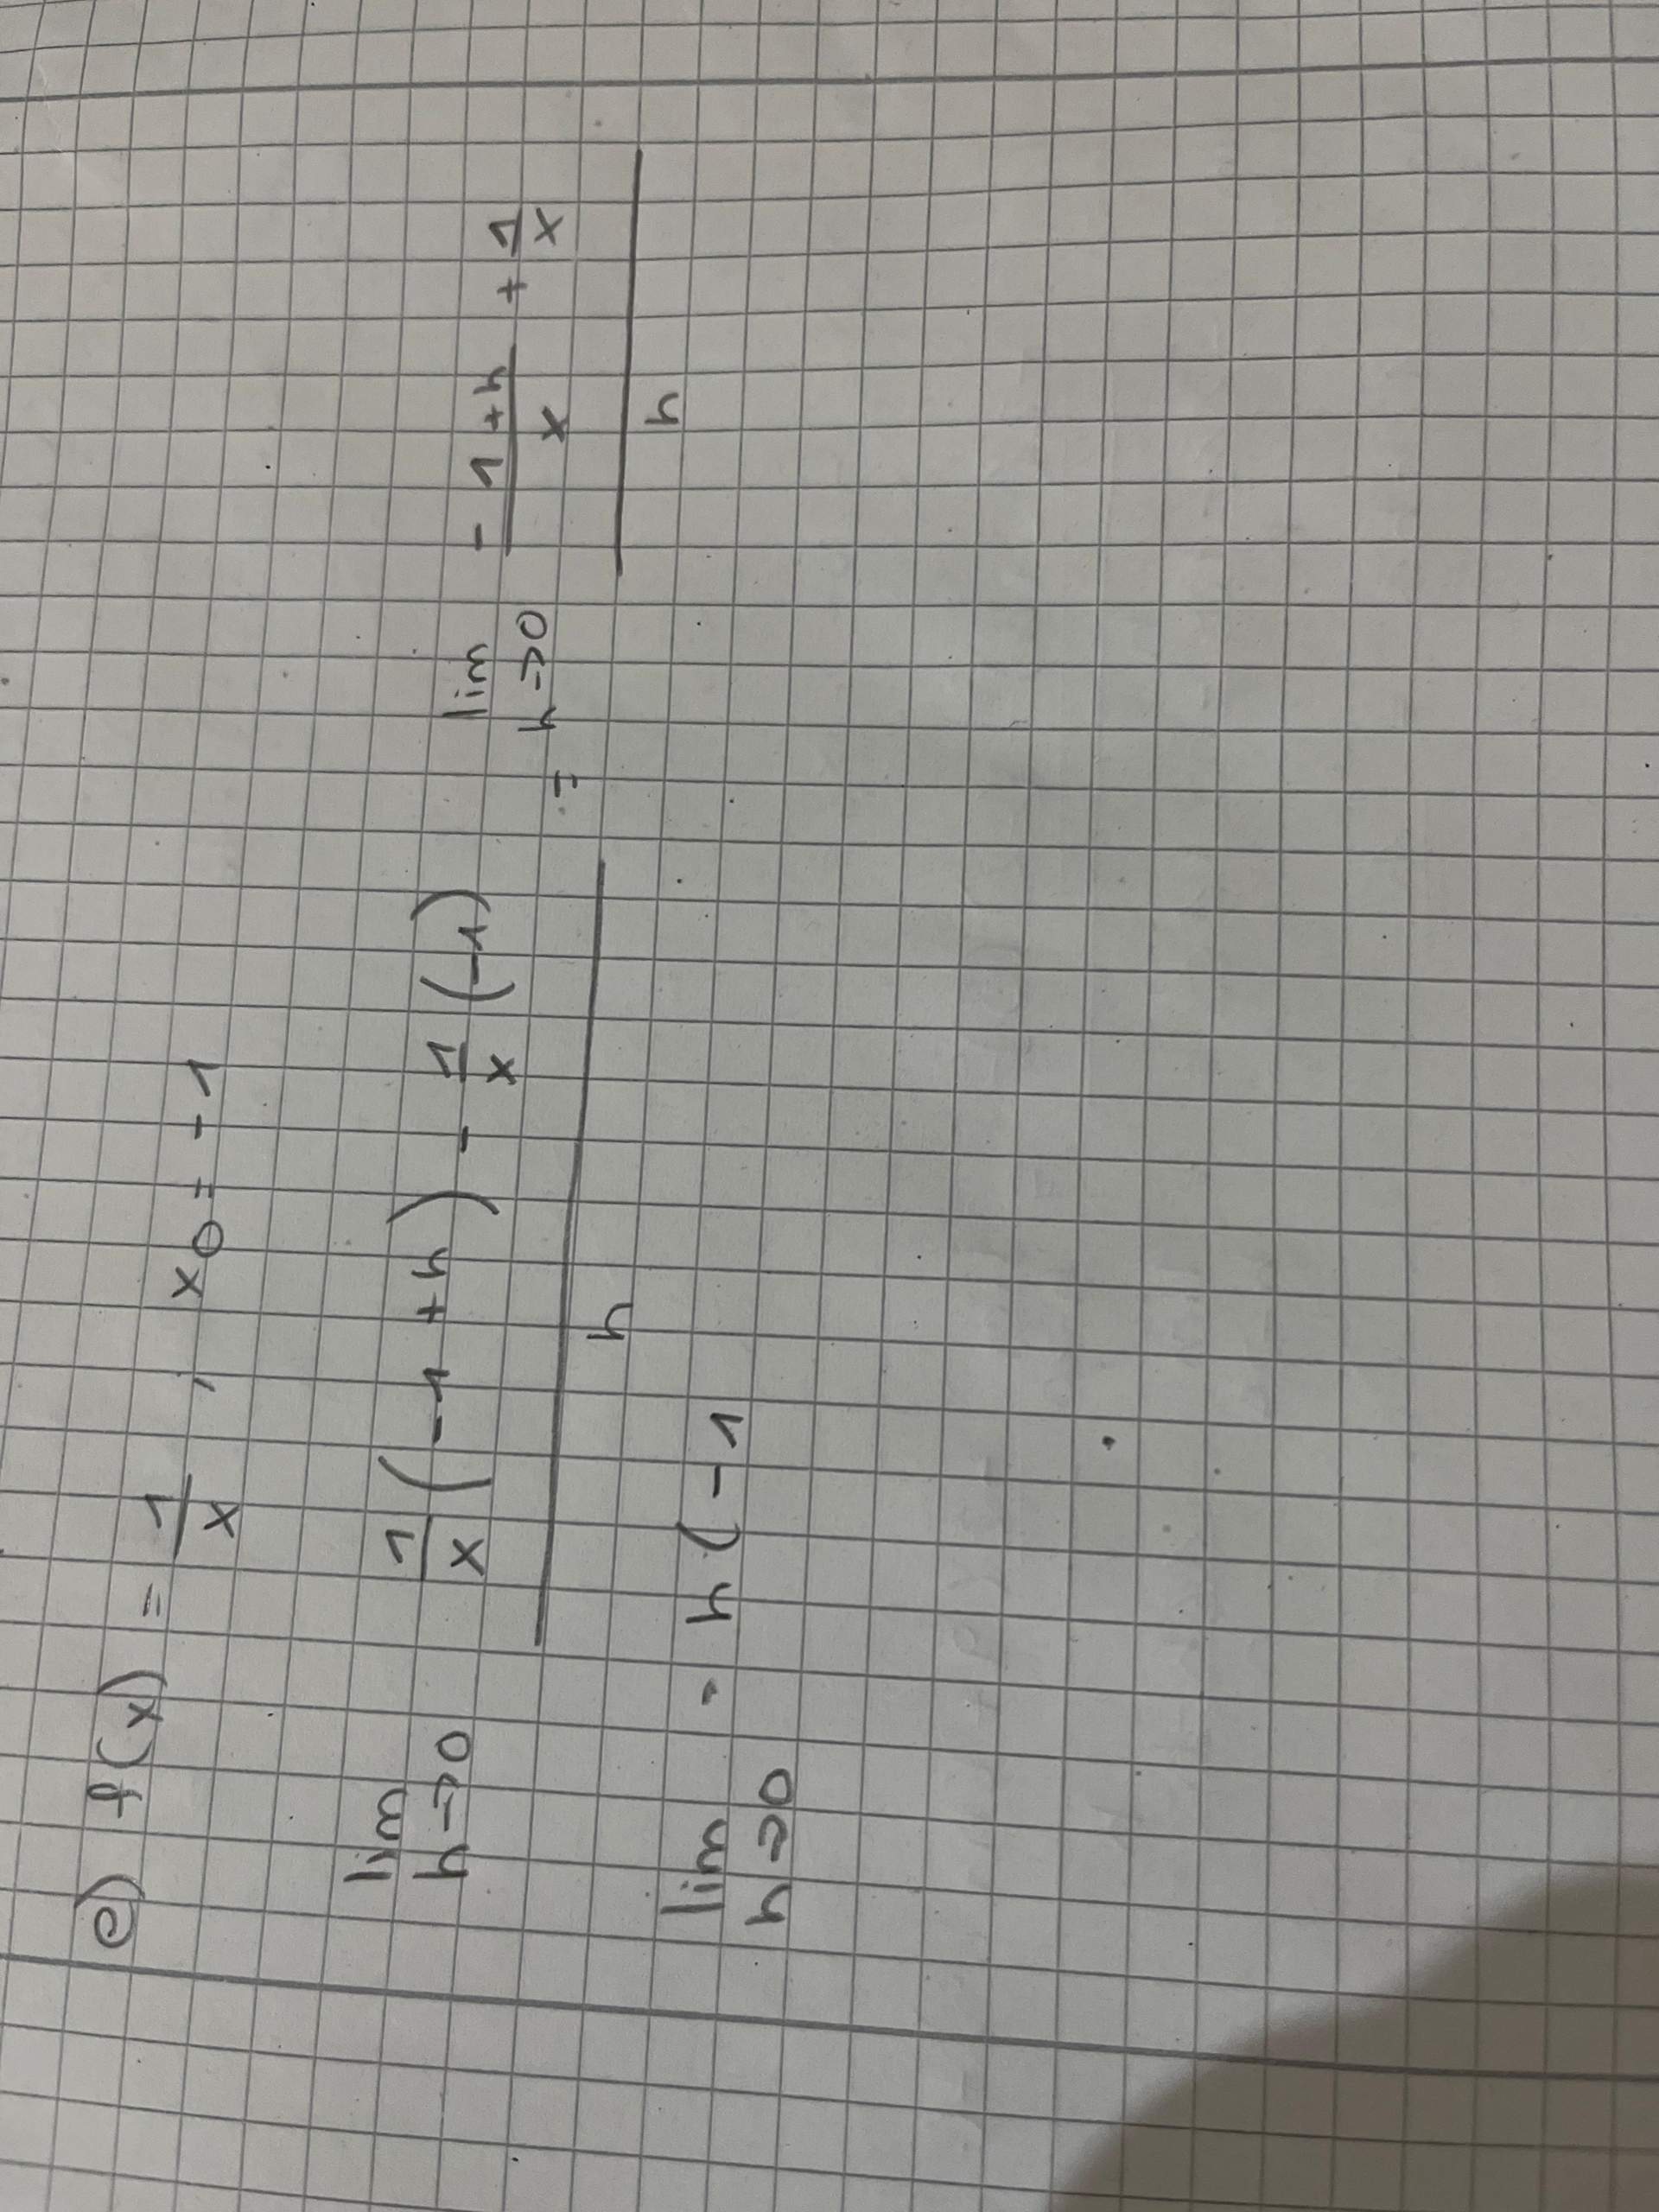 e) f(x) = 1/x , x0 = -1
lim h→0 (1/x (-1 + h) - 1/x (-1)) / h = lim h→0 ((-1+h)/x + 1/x) / h
lim h→0 · h (-1